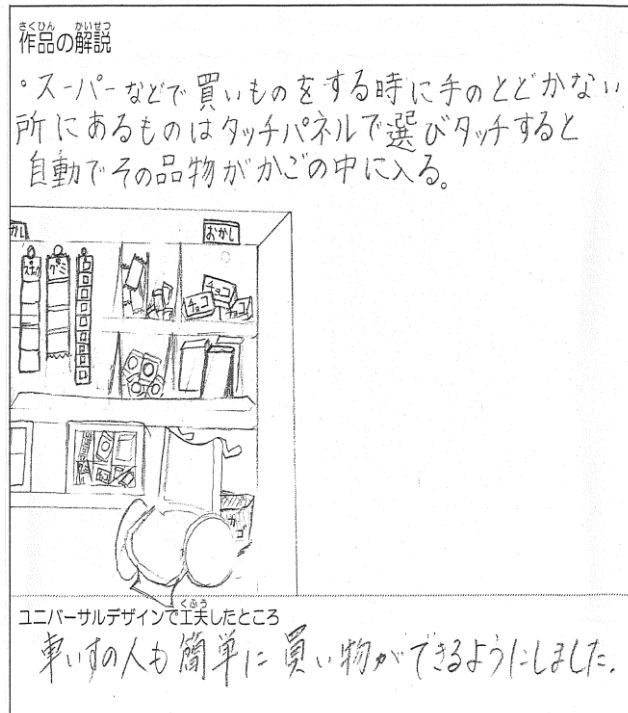 作品の解説
・スーパーなどで買いものをする時に手のとどかない
所にあるものはタッチパネルで選びタッチすると
自動でその品物がかごの中に入る。
かし
おかし
スナック
グミ
チョコ
カゴ
ユニバーサルデザインで工夫したところ
車いすの人も簡単に買い物ができるようにしました。